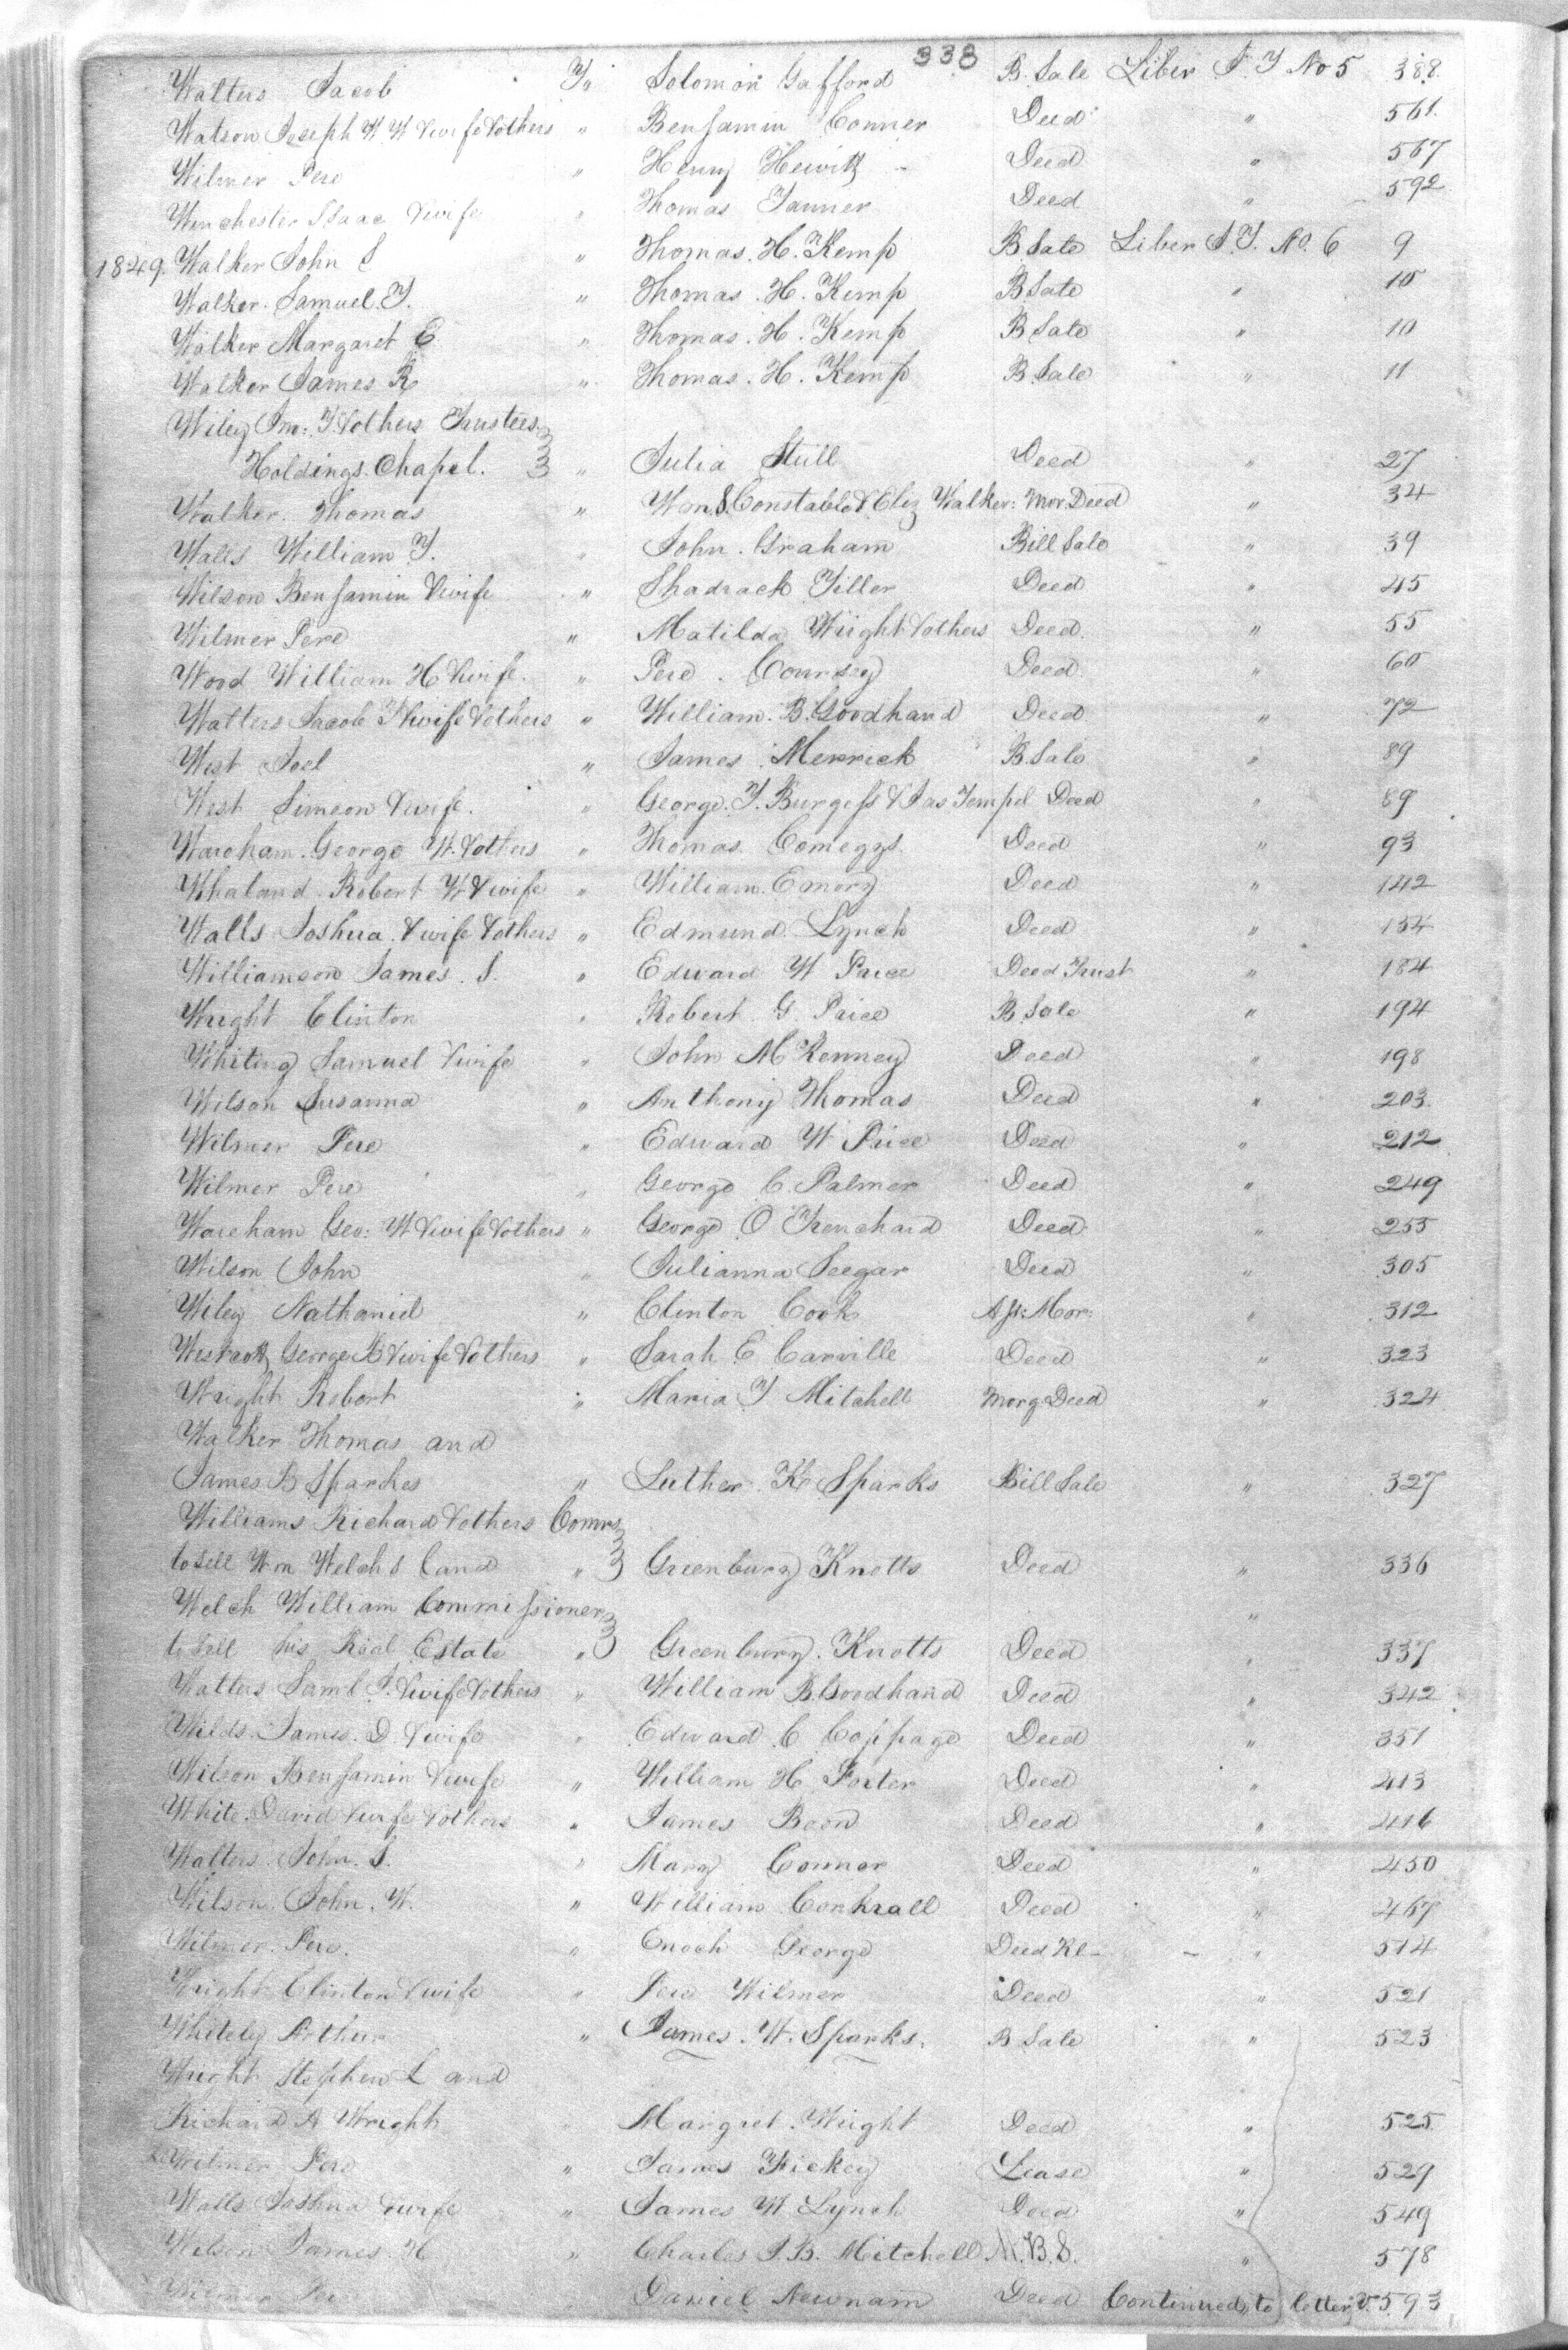 338
Walters Jacob To Solomon Gafford B. Sale Liber J. T No 5 388.
Watson Joseph W. W &wife &others " Benjamin Conner Deed " 561.
Wilmer Pere " Henry Hewitt Deed " 567
Winchester Isaac &wife " Thomas Tanner Deed " 592
1849. Walker John S " Thomas. H. Kemp B Sale Liber J. T. No. 6 9
Walker. Samuel. T. " Thomas. H. Kemp B Sale " 10
Walker Margaret E. " Thomas. H. Kemp B Sale " 10
Walker James R " Thomas. H. Kemp B. Sale " 11
Wiley Jno: T &others Trustees
Holdings. Chapel. " Julia Still Deed " 27
Walker. Thomas " Wm. S. Constable & Eliz Walker: Mor. Deed " 34
Walls William T. " John. Graham Bill Sale " 39
Wilson Benjamin &wife " Shadrack Tiller Deed " 45
Wilmer Pere " Matilda Wright &others Deed. " 55
Wood William H &wife. " Pere. Coursey Deed " 60
Watters Jacob T &wife &others " William. B. Goodhand Deed " 72
West Joel " James Merrick B. Sale " 89
West Simeon &wife. " George. T. Burgess & Jas Tempel Deed " 89
Wareham. George W. &others " Thomas. Comegys. Deed " 93
Whaland Robert W &wife " William. Emory Deed " 142
Walls Joshua. &wife &others " Edmund. Lynch Deed " 154
Williamson James. S. " Edward W Price Deed Trust " 184
Wright Clinton " Robert G. Price B. Sale " 194
Whiting Samuel &wife " John McKenney Deed " 198
Wilson Susanna " Anthony Thomas Deed " 203.
Wilmer Pere " Edward W Price Deed " 212
Wilmer Pere " George C. Palmer Deed " 249
Wareham Geo: W &wife &others " George O Trenchard Deed " 255
Wilson John " Julianna Seegar Deed " 305
Wiley Nathaniel " Clinton Cook Ass: Mor: " 312
Westcott George B &wife &others " Sarah E Carville Deed " 323
Wright Robert " Maria T Mitchell Morg Deed " 324
Walker Thomas and
James B Sparkes " Luther K Sparks Bill Sale " 327
Williams Richard &others Comrs
to Sell Wm Welchs land " Greenbury Knotts Deed " 336
Welch William Commissioners "
to Sell his Real Estate " Greenbury. Knotts Deed " 337
Watters Saml T. &wife &others " William B. Goodhand Deed " 342
Wilds. James. D. &wife " Edward C Coppage Deed " 351
Wilson Benjamin &wife " William H Foster Deed " 413
White. David &wife &others " James Boon Deed " 416
Walters. John. S. " Mary Connor Deed " 450
Wilson. John. W. " William Conkrall Deed " 467
Wilmer. Pere. " Enoch George Deed Re- " 514
Wright Clinton &wife " Pere Wilmer Deed " 521
Whiteley Arthur " James. W. Sparks. B Sale " 523
Wright Stephen L and
Richard A Wright Margret. Wright Deed " 525
Wilmer Pere " James Hickey Lease " 529
Walls Joshua &wife " James W Lynch Deed " 549
Wilson James. H " Charles J. B. Mitchell M. B. S. " 578
Wilmer Pere Daniel Newnam Deed Continued, to letter V. 593